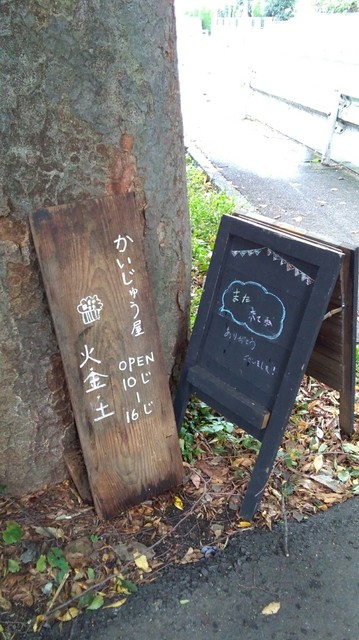 かいじゅう屋
火金土
OPEN
10じ-
16じ
また
ありがとう
ございました!